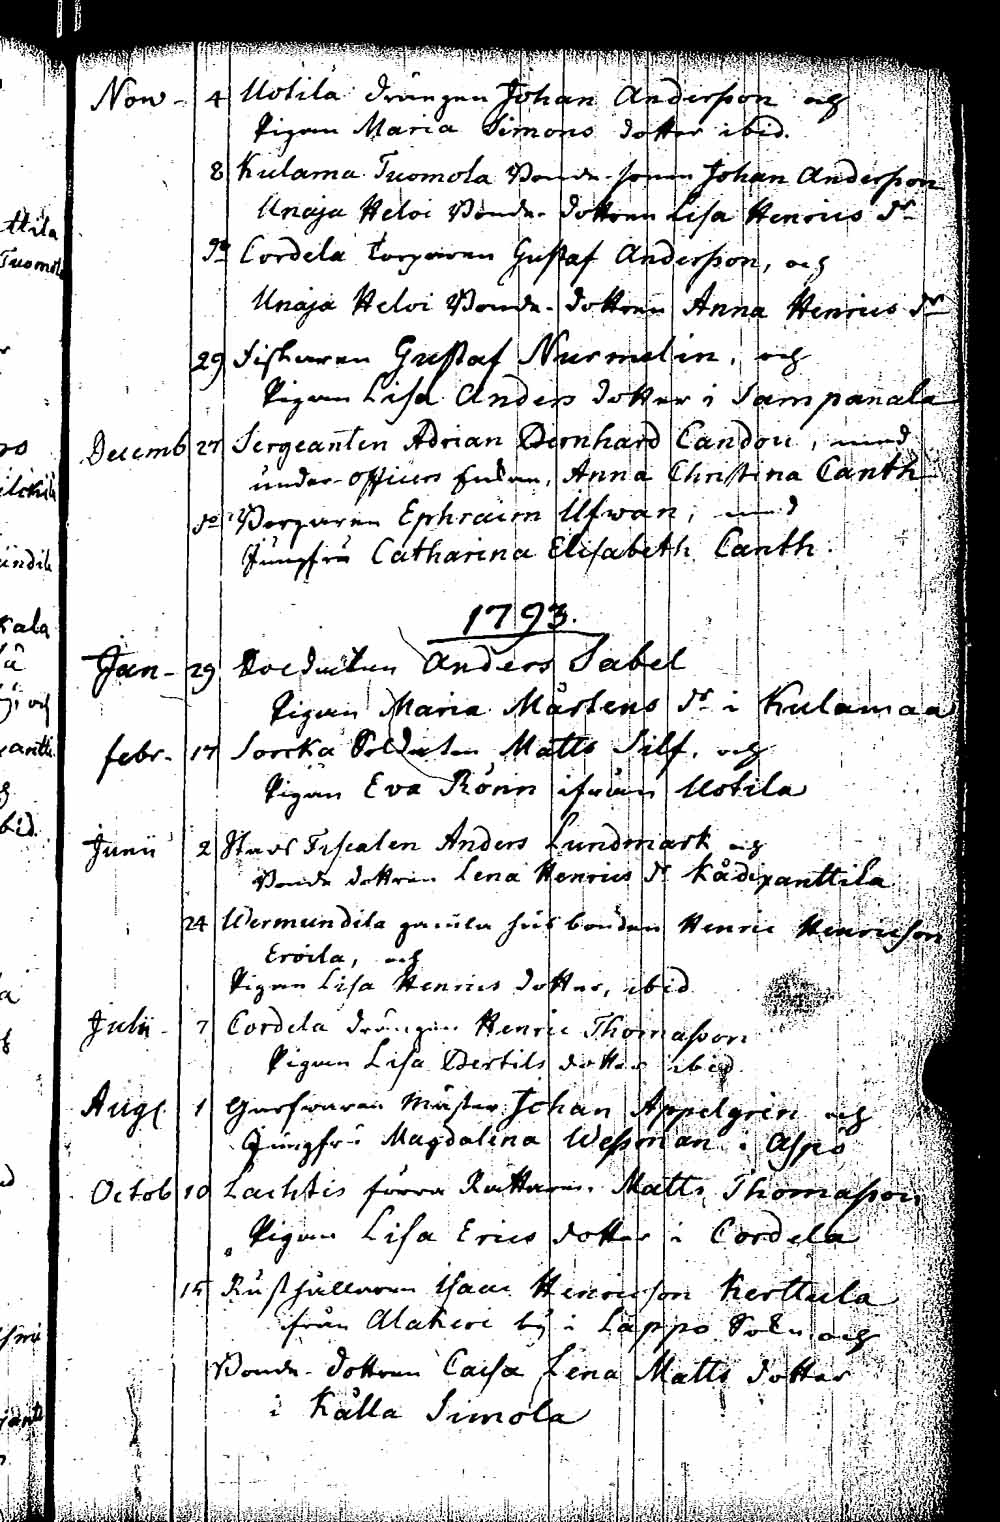 Nov. 4 Uotila drängen Johan Andersson och
Pigan Maria Simons dotter ibid.
8 Kulama Tuomola Bonde-sonen Johan Andersson
Unaja Heloi Bonde-dottren Lisa Henrics dr
do Cordela torparen Gustaf Andersson, och
Unaja Heloi Bonde-dottren Anna Henrics dr
29 Fiskaren Gustaf Nurmelin, och
Pigan Lisa Anders dotter i Sampanala
Decemb 27 Sergeanten Adrian Bernhard Candou, med
under-officers Anna Christina Canth
do Borgaren Ephraim Ufwan, med
Jungfru Catharina Elisabeth Canth.
1793.
Jan. 29 Soldaten Anders Sabel
Pigan Maria Mårtens dr i Kulamaa
febr. 17 Sorcka Soldaten Matts Silf, och
Pigan Eva Rönn ifrån Uotila
Junii 2 Fiscalen Anders Lundmark och
Bonde dottren Lena Henrics dr Kådixanttila
24 Wermundila gamla husbonden Henric Henricson
Eroila, och
Pigan Lisa Henrics dotter, ibid
Julii 7 Cordela drängen Henric Thomasson
Pigan Lisa Bertils dotter ibid
Aug 1 Garfwaren Mäster Johan Appelgrén och
Jungfru Magdalina Wessman i Aspö
Octob 10 Lachtis förra Rattaren Matts Thomasson
Pigan Lisa Erics dotter i Cordela
15 Rusthållaren Isaac Henricsson Kerttula
från Alakeri by i Lappo Sokn och
Bonde-dottren Caisa Lena Matts dotter
i Kålla Simola
ttila
Tuomola